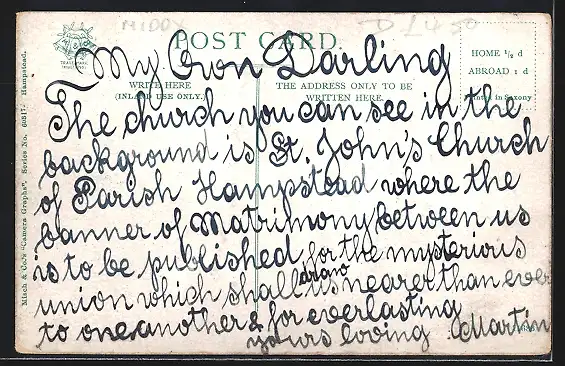 MIDDX
D £4.50
POST CARD.
TRADE MARK
HOME ½ d
ABROAD 1 d
Printed in Saxony
WRITE HERE
(INLAND USE ONLY.)
THE ADDRESS ONLY TO BE
WRITTEN HERE.
Misch & Co.'s "Camera Graphs". Series No. 608/7. Hampstead.
My Own Darling
The church you can see in the
background is St. John's Church
of Parish Hampstead where the
banner of Matrimony between us
is to be published, for the mysterious
union which shall draw us nearer than ever
to one another & for everlasting
yours loving Martin